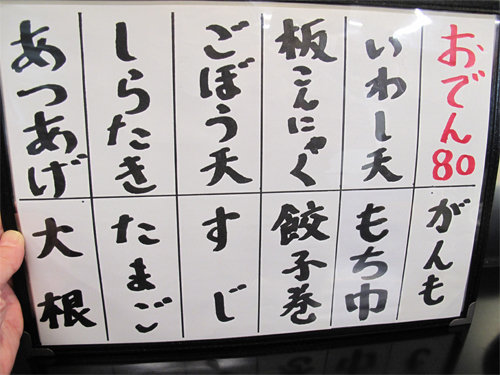 おでん80
がんも
いわし天
もち巾
板こんにゃく
餃子巻
ごぼう天
すじ
しらたき
たまご
あつあげ
大根